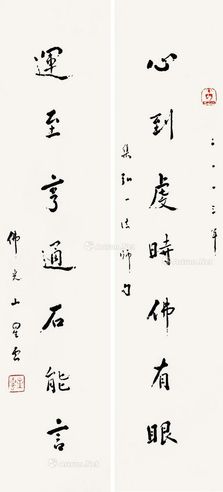 心到虔時佛有眼
二〇〇三年
集弘一法師句
運至亨通石能言
佛光山星雲